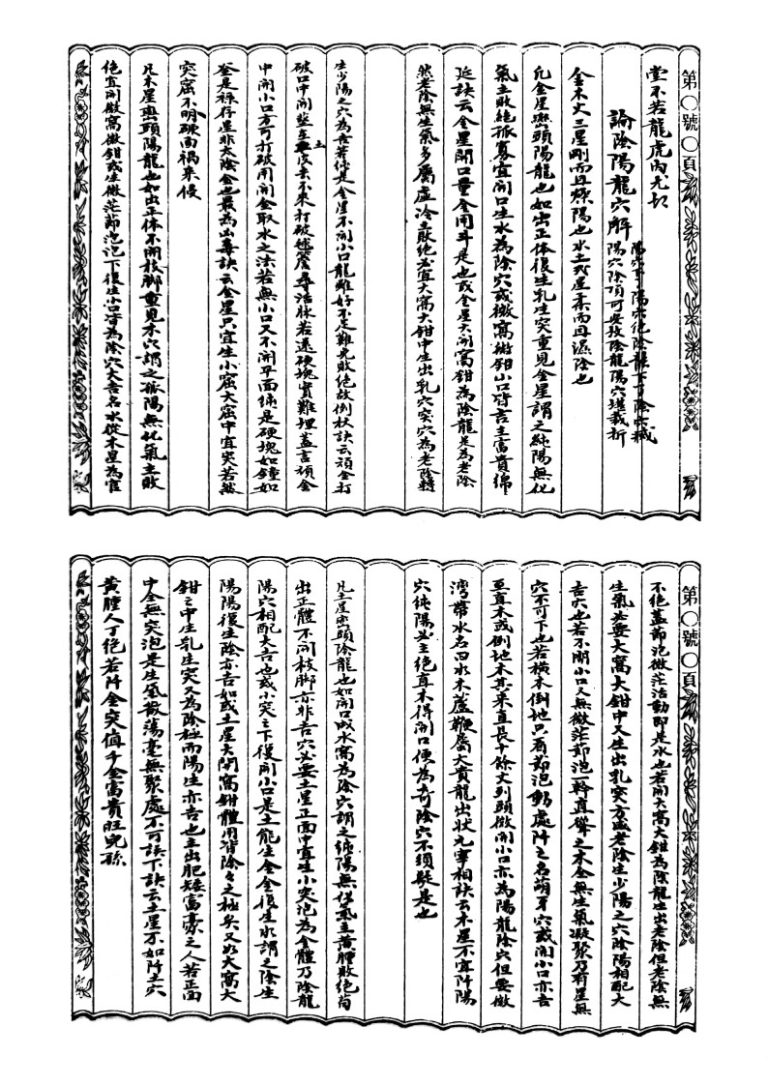 第〇號〇頁
堂不若龍虎內尤切
論陰陽龍穴解
陽穴陰頂可安扶陰龍陽穴堪裁折
金木火三星剛而且燥陽也水土二星柔而且濕陰也
凡金星巒頭陽龍也如出正体復生乳生突重見金星謂之純陽無化
氣主敗絕孤寡宜開口生水為陰穴或微窩微鉗小口皆吉主富貴綿
延訣云金星開口量金用斗是也或金星大開窩鉗為陰龍是為老陰
然老陰無生氣多屬虛冷主敗絕必宜大窩大鉗中生出乳穴突穴為老陰轉
生少陽之穴為吉若純是金星不開小口龍雖好不足難免敗絕故倒杖訣云頑金打
破口中開些些土皮去不來打破爐聲尋活脉若還硬塊實難埋蓋言頑金
中開小口方可打破用開金取水之法若無小口又不開平面純是硬塊如鐘如
釜是祿存星非太陰金也最為凶毒訣云金星只宜生小窟大窟中宜突若然
突窟不明硬面禍來侵
凡木星巒頭陽龍也如出正体不開枝脚重見木穴謂之孤陽無化氣主敗
絕宜開微窩微鉗或生微茫節泡泡下復生小口皆為陰穴大吉名水從木星為官
第〇號〇頁
不絕蓋節泡微茫活動即是水也若開大窩大鉗為陰龍生出老陰但老陰無
生氣必要大窩大鉗中又生出乳突方成老陰生少陽之穴陰陽相配大
吉穴也若不開小口又無微茫節泡一幹直聳之木全無生氣凝聚乃有星無
穴不可下也若橫木倒地只看節泡動處阡之名萌芽穴或開小口亦吉
至直木或倒地木其來直長十餘丈到頭微開小口亦為陽龍陰穴但要微
灣帶水名曰水木蘆鞭屬大貴龍出狀元宰相訣云木星不宜阡陽
穴純陽必主絕直木得開口便為奇陰穴不須疑是也
凡土星巒頭陰龍也如開口成水窩為陰穴謂之純陽無化氣主黃腫敗絕苟
出正體不開枝脚亦非吉穴必要土星正面中宜生小突泡為金體乃陰龍
陽穴相配大吉也或小突之下復開小口是土能生金金復生水謂之陰生
陽陽復生陰亦吉如或土星大開窩鉗體用皆陰陰之極矣又必大窩大
鉗之中生乳生突又為陰極而陽生亦吉也主出肥矮富豪之人若正面
中全無突泡是生氣散蕩毫無聚處不可誤下訣云土星不如阡土穴
黃腫人丁絕若阡金突值千金富貴旺兒孫